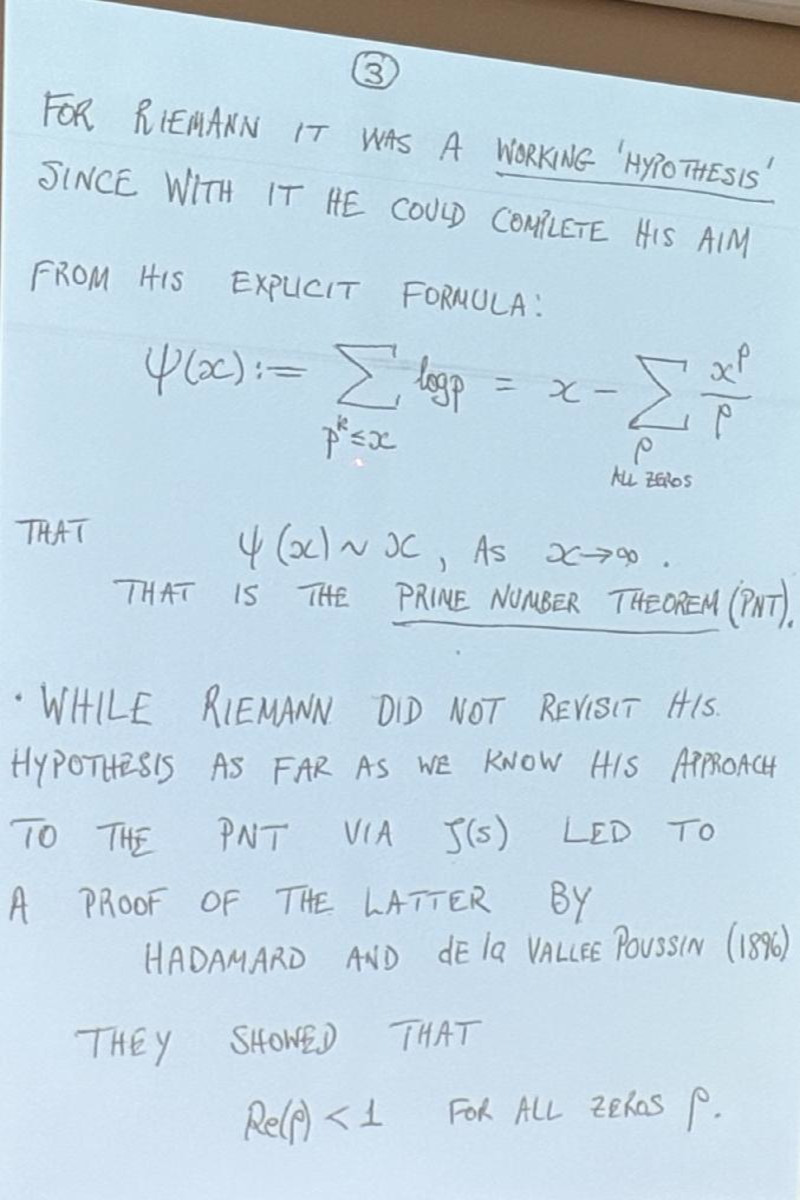 ③
FOR RIEMANN IT WAS A WORKING 'HYPOTHESIS'
SINCE WITH IT HE COULD COMPLETE HIS AIM
FROM HIS EXPLICIT FORMULA:
ψ(x) := ∑_{p^k ≤ x} log p = x − ∑_{ρ ALL ZEROS} x^ρ/ρ
THAT ψ(x) ~ x, AS x→∞.
THAT IS THE PRIME NUMBER THEOREM (PNT).
· WHILE RIEMANN DID NOT REVISIT HIS
HYPOTHESIS AS FAR AS WE KNOW HIS APPROACH
TO THE PNT VIA ζ(s) LED TO
A PROOF OF THE LATTER BY
HADAMARD AND de la VALLEE POUSSIN (1896)
THEY SHOWED THAT
Re(ρ) < 1 FOR ALL ZEROS ρ.